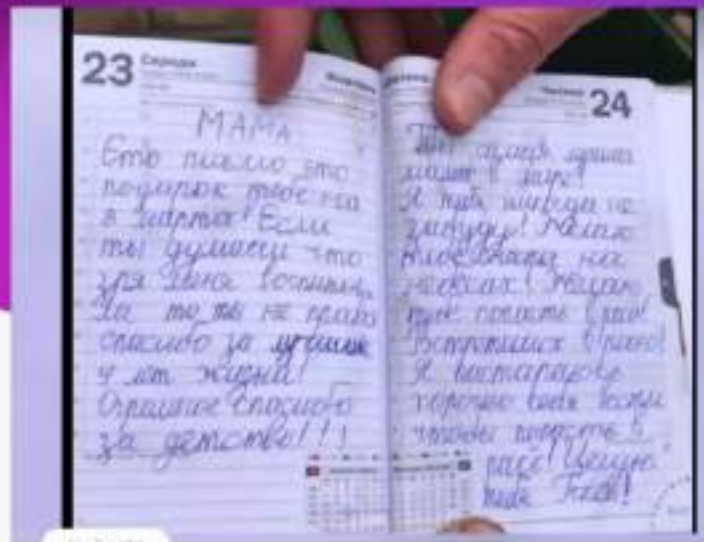 23 Середа
МАМА
Єто писмо это
подарок тебе на
8 марта! Если
ты думаеш что
зря меня воспитала
то ты не права
спасибо за лучшие
9 лет жизни!
Огромное спасибо
за детство!!!
24
Ты самая лучшая
мама в мире!
Я тебя никогда не
забуду! Желаю
тебе удачи на
небесах! Желаю
тебе попасть в рай!
Встретимся в раю!
Я постараюсь
хорошо себя вести
чтобы попасть в
рай! Целую
тебя